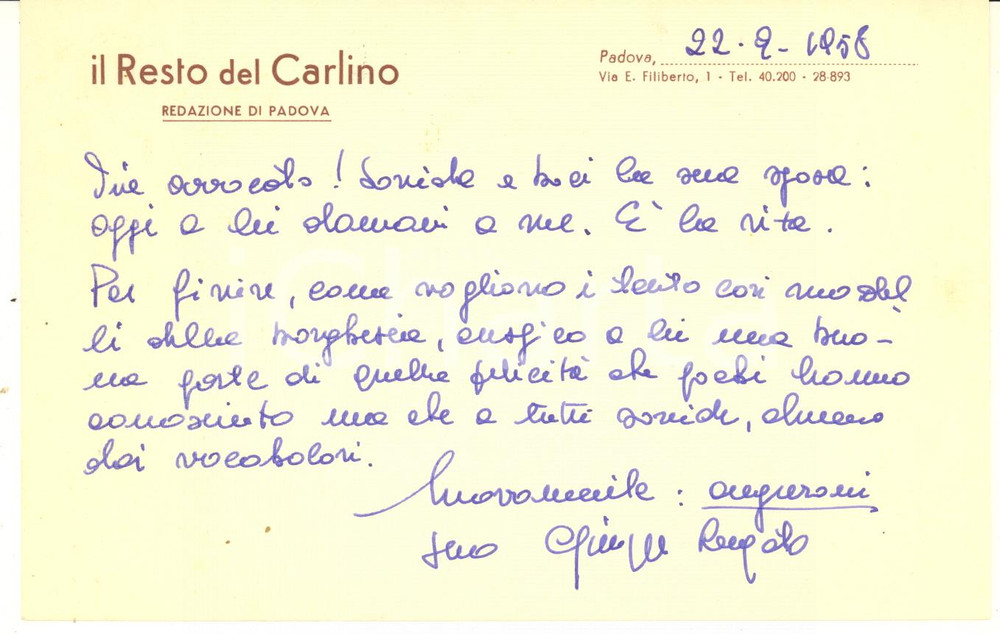 il Resto del Carlino
REDAZIONE DI PADOVA
Padova, 22-9-1958
Via E. Filiberto, 1 - Tel. 40.200 - 28-893
avvocato! Sorrida e baci la sua sposa:
oggi a lei domani a me. È la vita.
Per finire, come vogliono i tanto cari model
li della borghesia, auguro a lei una buo-
na parte di quella felicità che pochi hanno
conosciuto ma che a tutti sorride, almeno
dai vocabolari.
Nuovamente: auguroni
suo
iCharta